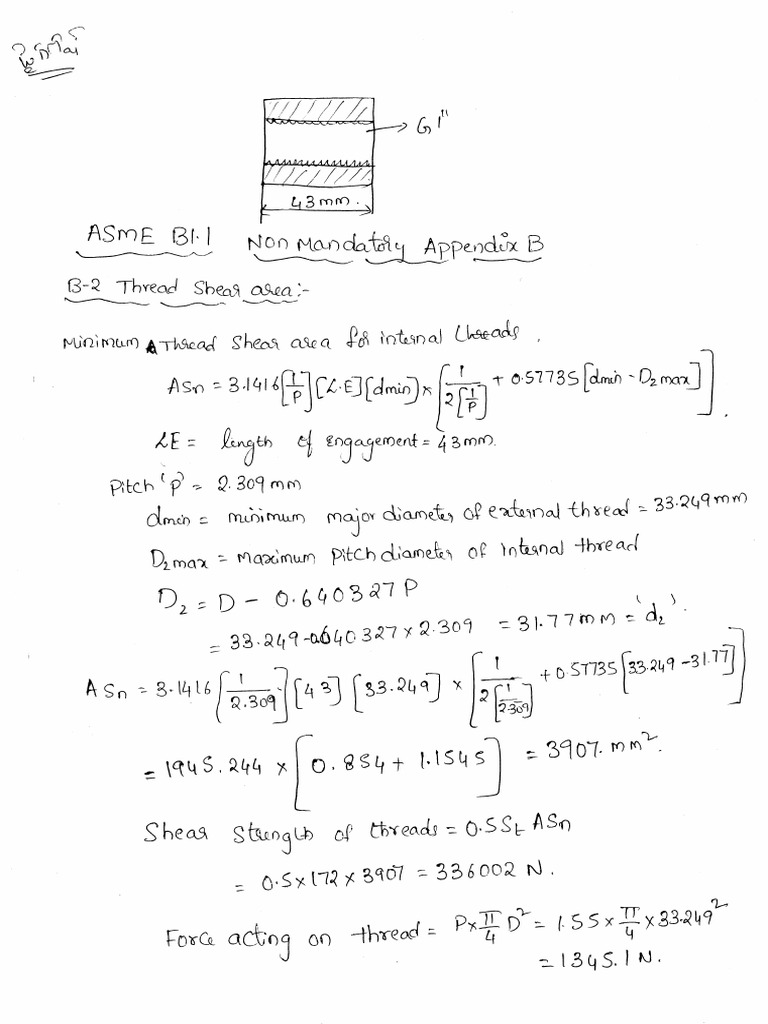 G1"
43mm.
ASME B1.1 Non Mandatory Appendix B
B-2 Thread Shear area:-
Minimum Thread Shear area for internal threads,
ASn = 3.1416[1/P][L.E][dmin] × [1/2[1/P] + 0.57735[dmin - D2 max]].
LE = length of engagement = 43mm.
Pitch 'p' = 2.309mm
dmin = minimum major diameter of external thread = 33.249mm
D2max = Maximum Pitch diameter of Internal thread
D2 = D - 0.640327 P
= 33.249-0.640327×2.309 = 31.77mm = 'd2'.
ASn = 3.1416[1/2.309][43][33.249] × [1/2[1/2.309] + 0.57735[33.249-31.77]]
= 1945.244 × [0.854 + 1.1545] = 3907.mm².
Shear Strength of threads = 0.5St ASn
= 0.5×172×3907 = 336002 N.
Force acting on thread = P×π/4 D² = 1.55×π/4×33.249²
= 1345.1N.